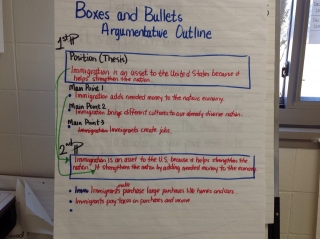 Boxes and Bullets
Argumentative Outline
1st P
Position (Thesis)
Immigration is an asset to the United States because it
helps strengthen the nation.
Main Point 1
• Immigration adds needed money to the nation's economy.
Main Point 2
Immigration brings different cultures to our already diverse nation.
Main Point 3
• Immigration Immigrants create jobs.
2nd P
Immigration is an asset to the U.S. because it helps strengthen the
nation. It strengthens the nation by adding needed money to the economy.
make
• Imm Immigrants purchase large purchases like homes and cars.
• Immigrants pay taxes on purchases and income
•